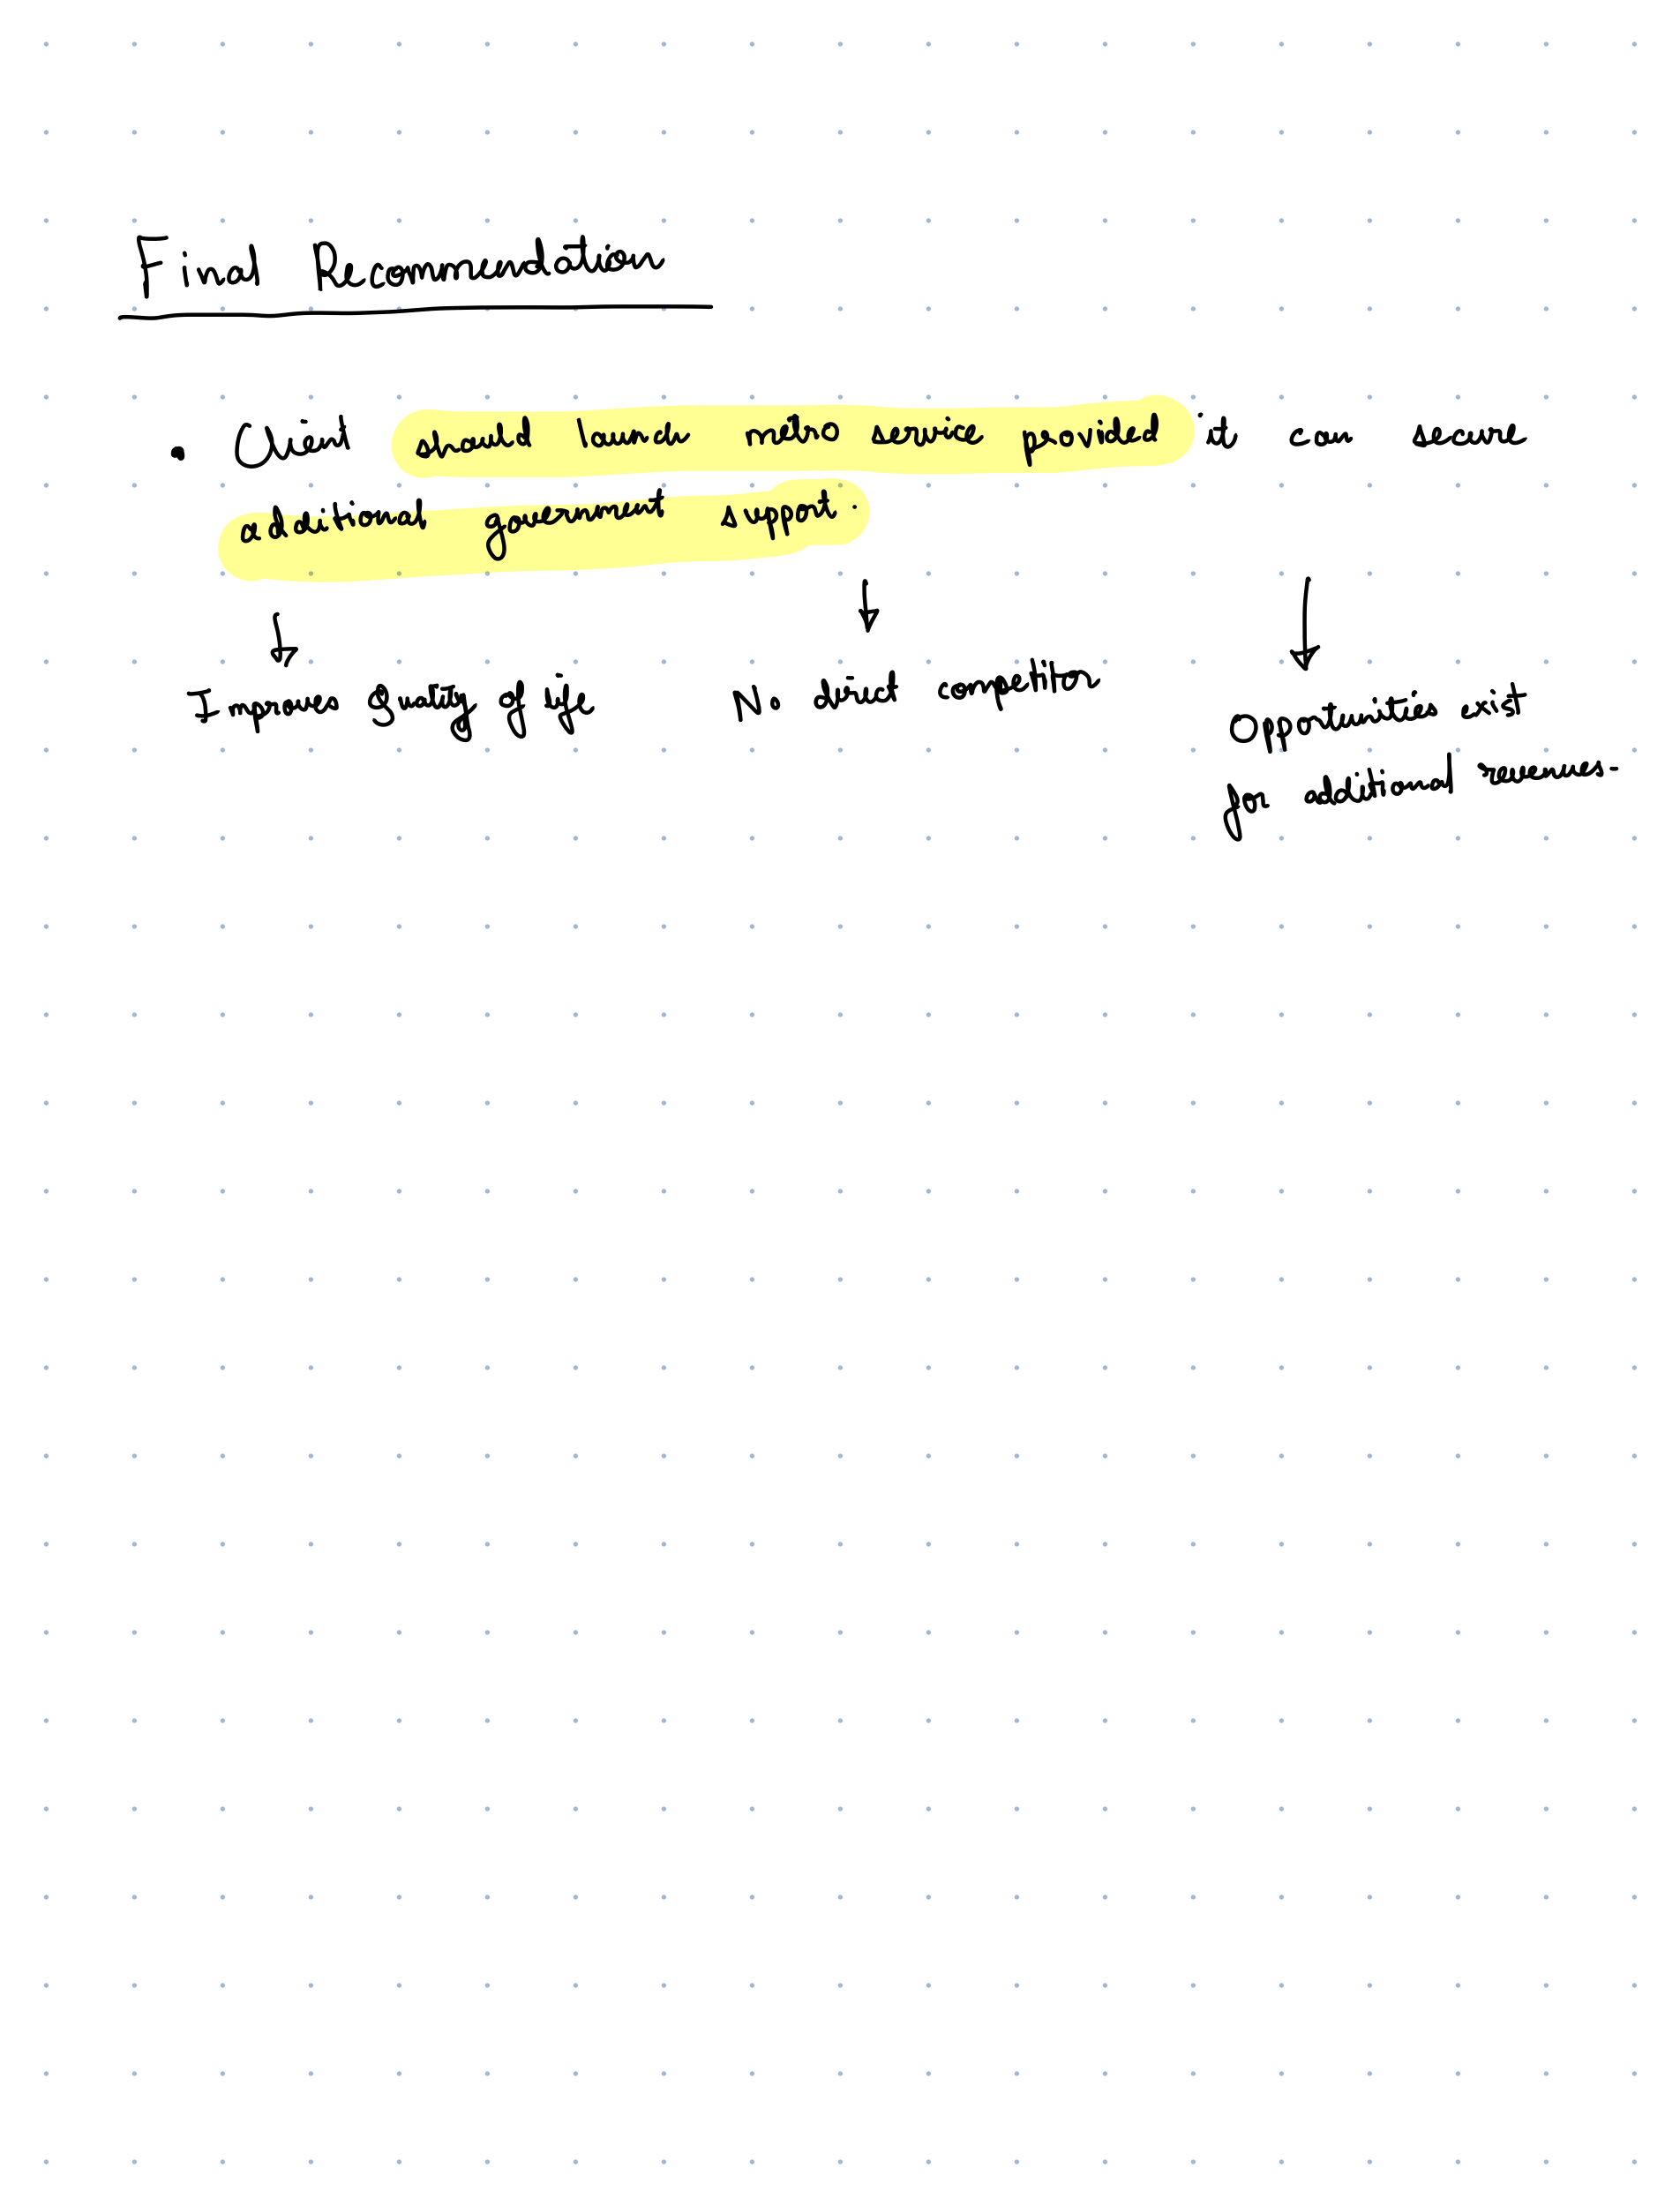 Final Recommendation
• Client should launch metro service provided it can secure
additional government support.
Improves Quality of life
No direct competition
Opportunities exist
for additional revenues.